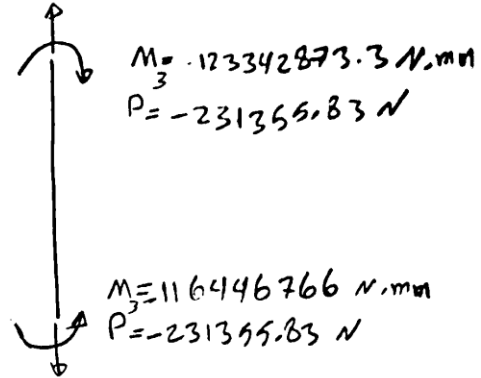 M3= .123342873.3 N.mm
P= -231355.83 N
M3=116446766 N.mm
P=-231355.83 N